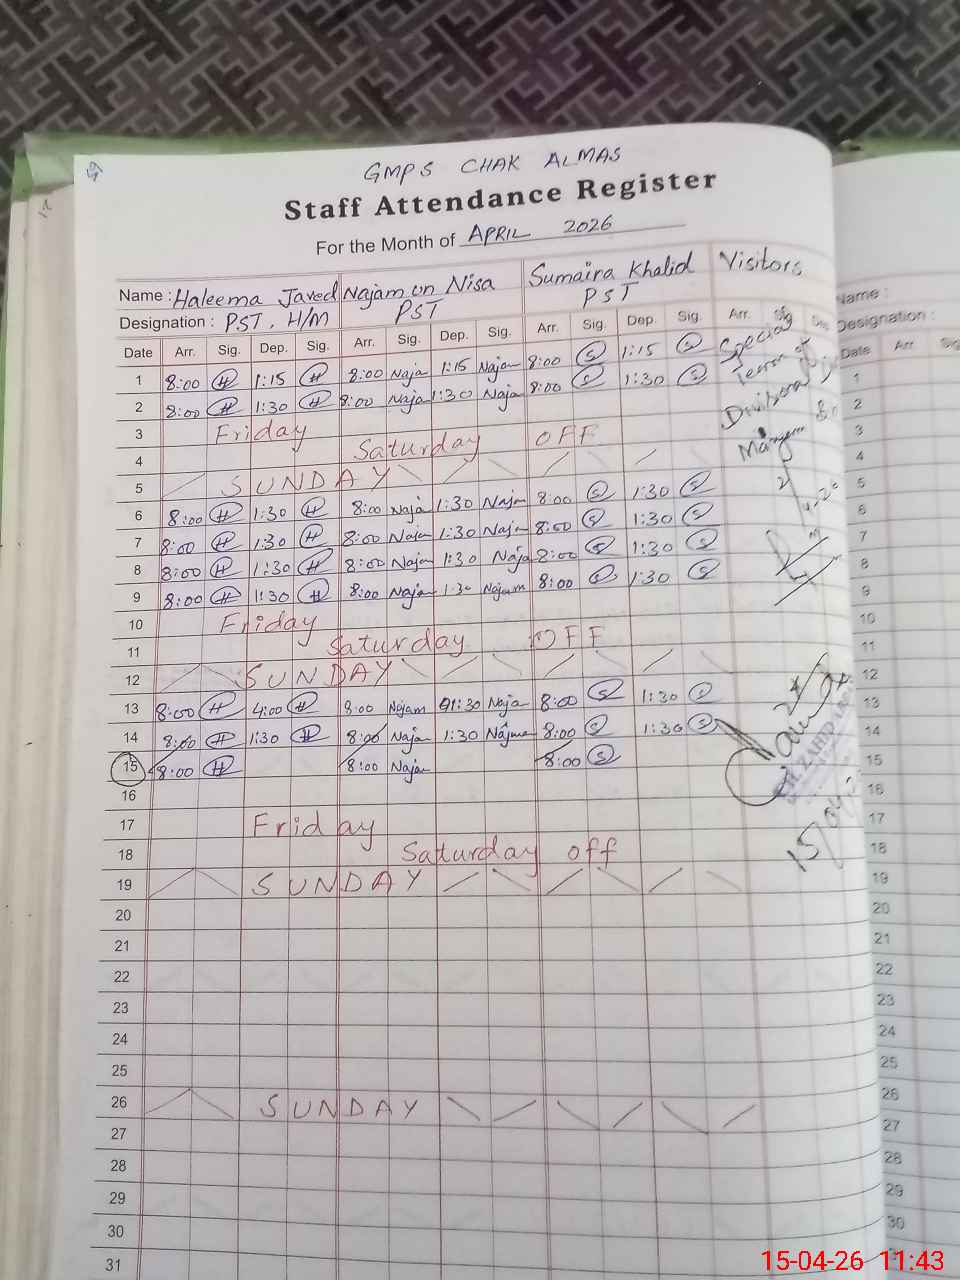 GMPS CHAK ALMAS
Staff Attendance Register
For the Month of APRIL 2026
Name : Haleema Javed Najam un Nisa Sumaira Khalid Visitors
Designation : PST, H/M PST PST
Date Arr. Sig. Dep. Sig. Arr. Sig. Dep. Sig. Arr. Sig. Dep. Sig. Arr.
1 8:00 H 1:15 H 8:00 Naja 1:15 Naja 8:00 S 1:15 S Special
2 8:00 H 1:30 H 8:00 Naja 1:30 Naja 8:00 S 1:30 S
3 Friday Divisional
4 Saturday OFF
5 SUNDAY
6 8:00 H 1:30 H 8:00 Naja 1:30 Naja 8:00 S 1:30 S
7 8:00 H 1:30 H 8:00 Naja 1:30 Naja 8:00 S 1:30 S
8 8:00 H 1:30 H 8:00 Najam 1:30 Naja 8:00 S 1:30 S
9 8:00 H 1:30 H 8:00 Naja 1:30 Najam 8:00 S 1:30 S
10 Friday
11 Saturday OFF
12 SUNDAY
13 8:00 H 4:00 H 8:00 Najam 1:30 Naja 8:00 S 1:30 S
14 8:00 H 1:30 H 8:00 Naja 1:30 8:00 S 1:30 S
15 8:00 H 8:00 Naja 8:00 S
16
17 Friday
18 Saturday off
19 SUNDAY
20
21
22
23
24
25
26 SUNDAY
27
28
29
30
31
Name :
Designation :
Date Arr
1
2
3
4
5
6
7
8
9
10
11
12
13
14
15
16
17
18
19
20
21
22
23
24
25
26
27
28
29
30
15-04-26 11:43